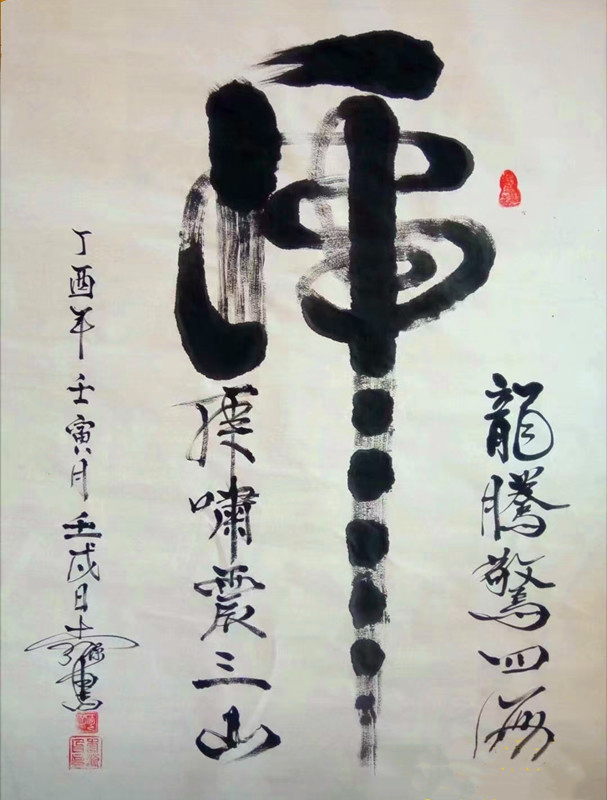 龍騰驚四海
虎
虎嘯震三山
丁酉年壬寅月壬戌日書